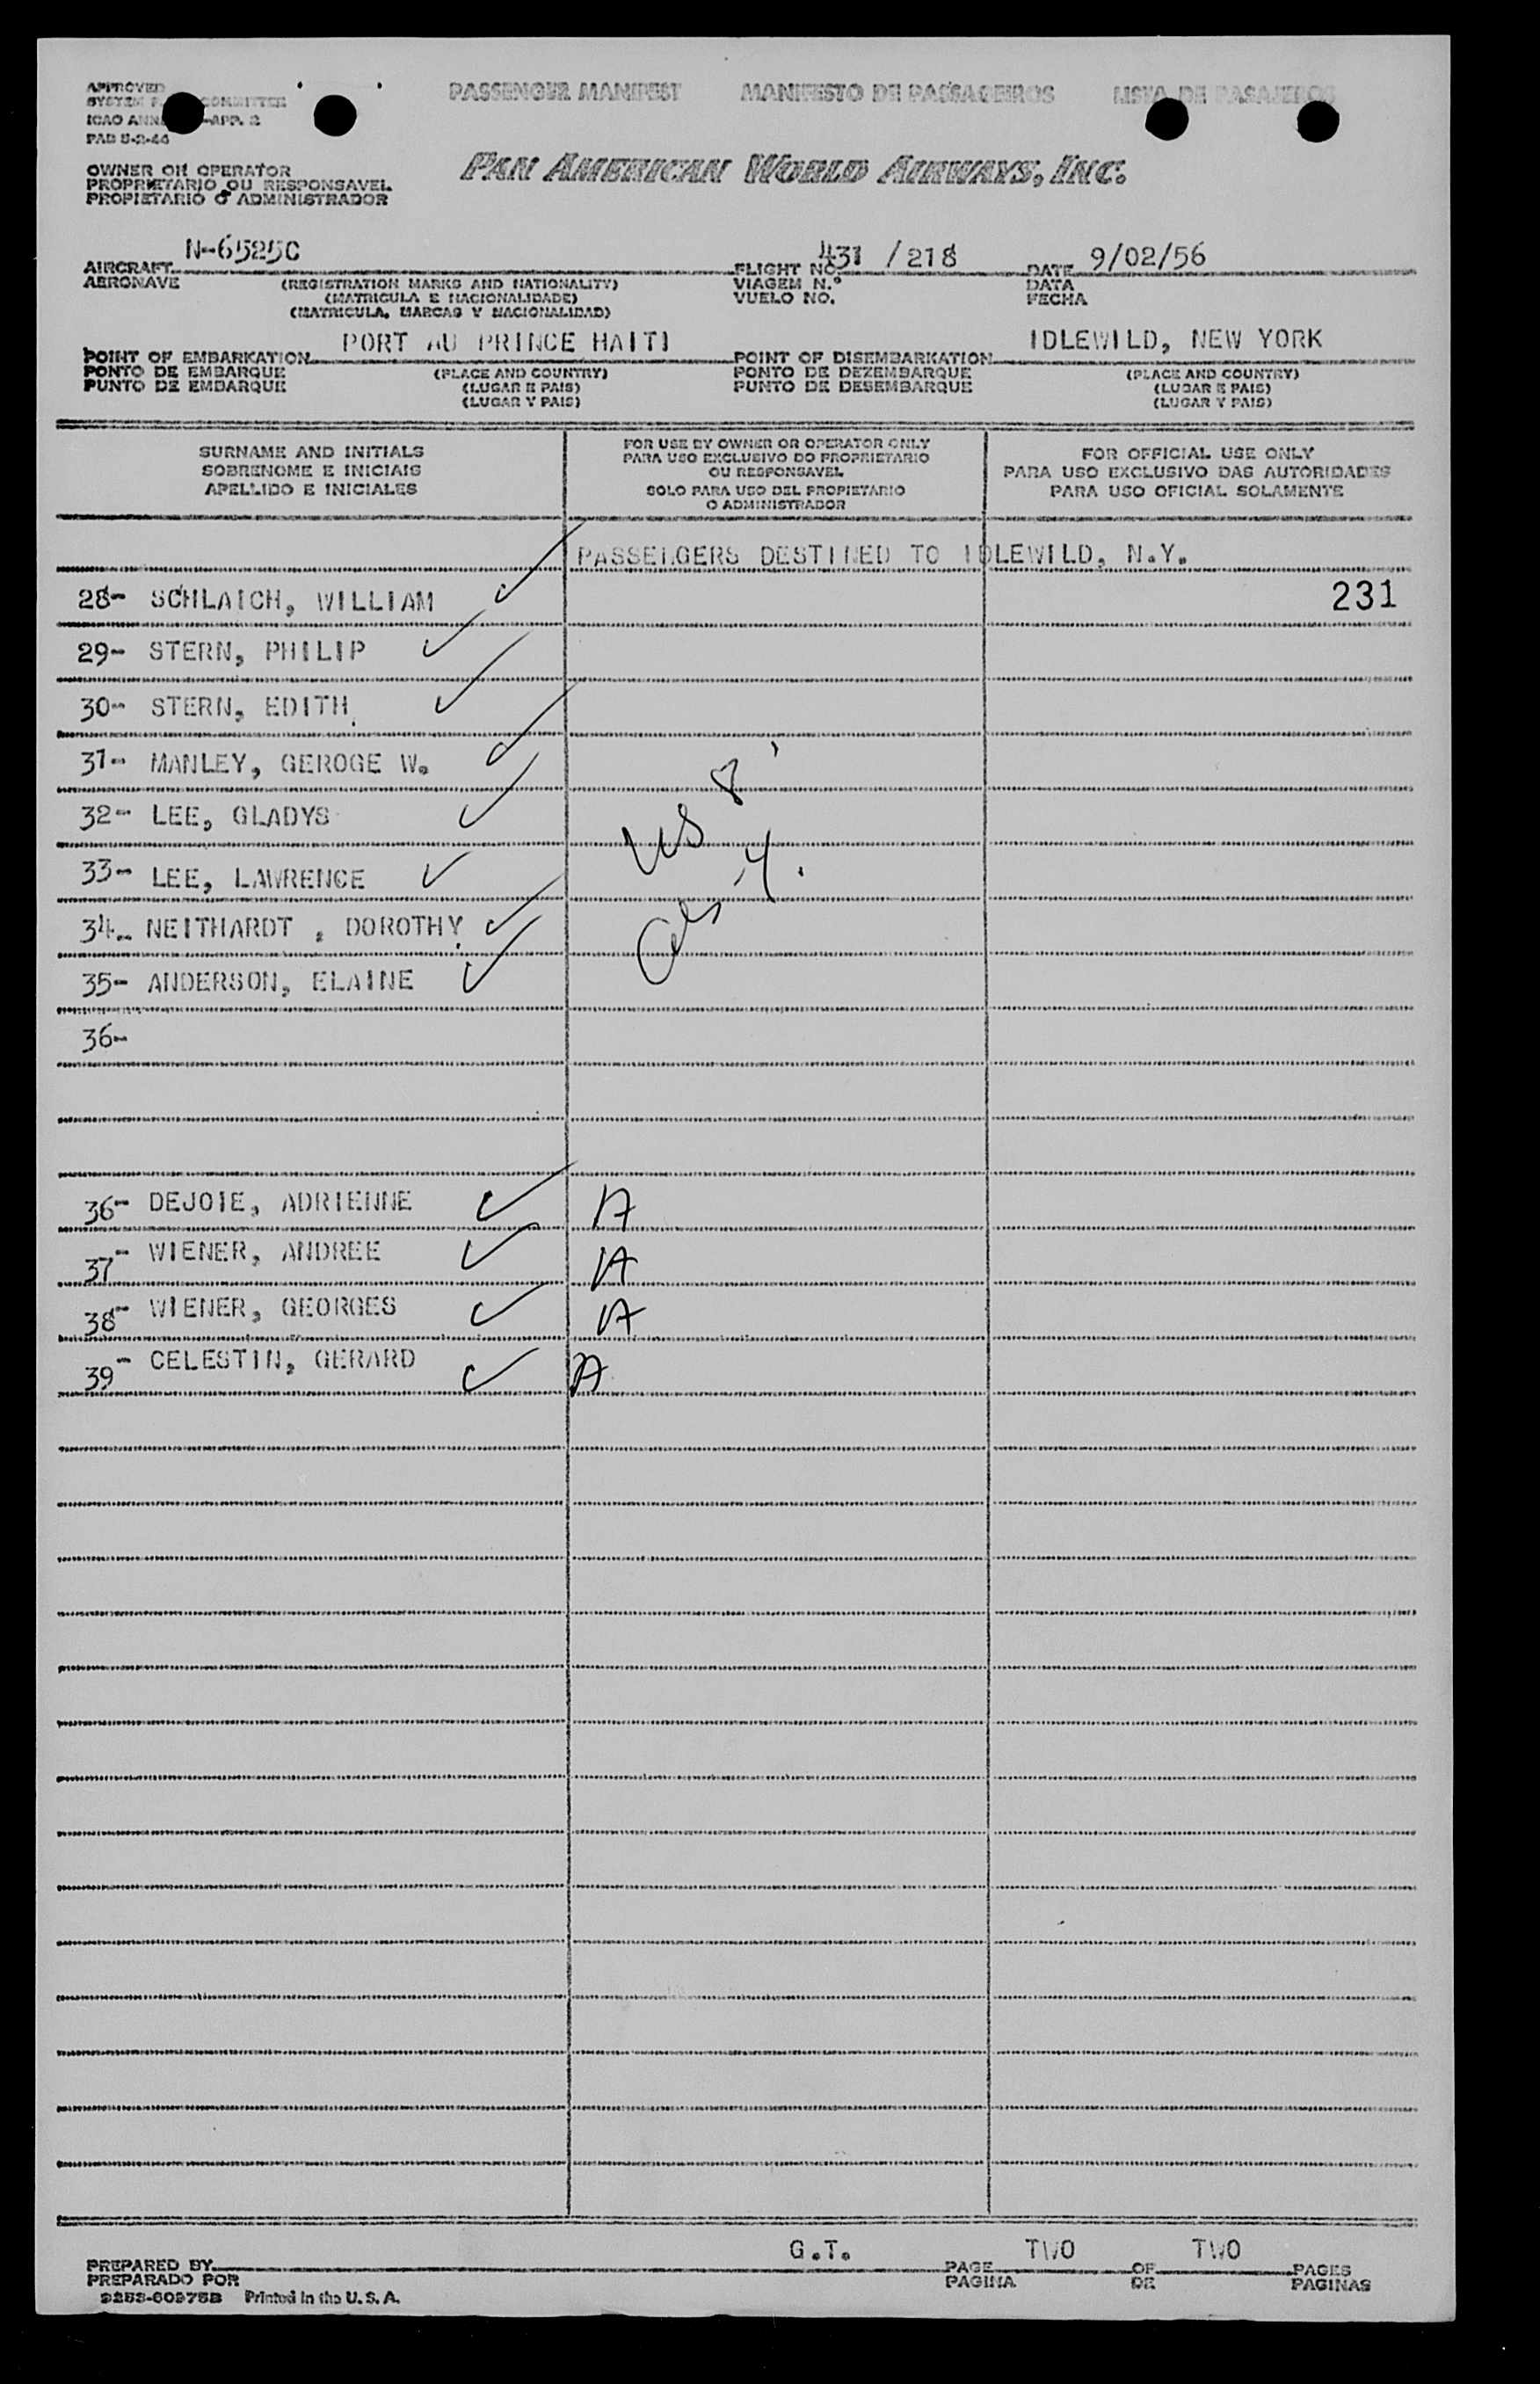 APPROVED PASSENGER MANIFEST MANIFESTO DE PASSAGEIROS LISTA DE PASAJEROS
SYSTEM COMMITTEE
ICAO APP. 2
PAD 5-2-44
OWNER OR OPERATOR
PROPRIETARIO OU RESPONSAVEL
PROPIETARIO O ADMINISTRADOR
PAN AMERICAN WORLD AIRWAYS, INC.
AIRCRAFT N-6525C FLIGHT NO. 431 / 218 DATE 9/02/56
AERONAVE (REGISTRATION MARKS AND NATIONALITY) VIAGEM N.º DATA
(MATRICULA E NACIONALIDADE) VUELO NO. FECHA
(MATRICULA, MARCAS Y NACIONALIDAD)
POINT OF EMBARKATION PORT AU PRINCE HAITI POINT OF DISEMBARKATION IDLEWILD, NEW YORK
PONTO DE EMBARQUE (PLACE AND COUNTRY) PONTO DE DEZEMBARQUE (PLACE AND COUNTRY)
PUNTO DE EMBARQUE (LUGAR E PAIS) PUNTO DE DESEMBARQUE (LUGAR E PAIS)
(LUGAR Y PAIS) (LUGAR Y PAIS)
SURNAME AND INITIALS
SOBRENOME E INICIAIS
APELLIDO E INICIALES
FOR USE BY OWNER OR OPERATOR ONLY
PARA USO EXCLUSIVO DO PROPRIETARIO
OU RESPONSAVEL
SOLO PARA USO DEL PROPIETARIO
O ADMINISTRADOR
FOR OFFICIAL USE ONLY
PARA USO EXCLUSIVO DAS AUTORIDADES
PARA USO OFICIAL SOLAMENTE
PASSENGERS DESTINED TO IDLEWILD, N.Y.
28- SCHLAICH, WILLIAM 231
29- STERN, PHILIP
30- STERN, EDITH
31- MANLEY, GEROGE W.
32- LEE, GLADYS
US 8
33- LEE, LAWRENCE
34- NEITHARDT , DOROTHY
4.
35- ANDERSON, ELAINE
36-
36- DEJOIE, ADRIENNE A
37- WIENER, ANDREE A
38- WIENER, GEORGES A
39- CELESTIN, GERARD A
PREPARED BY G.T. PAGE TWO OF TWO PAGES
PREPARADO POR PAGINA DE PAGINAS
Printed in the U.S.A.